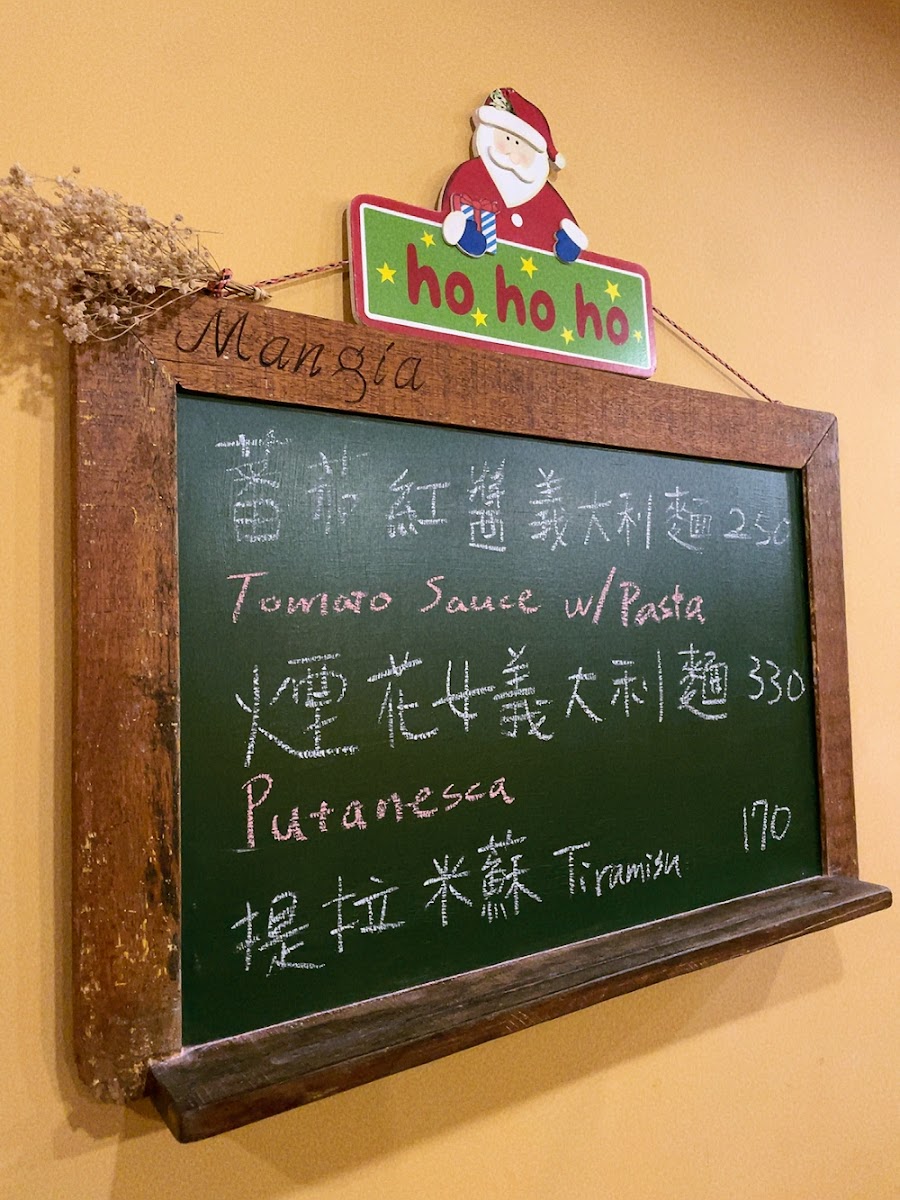 ho ho ho
Mangia
蕃茄紅醬義大利麵 250
Tomato Sauce w/Pasta
煙花女義大利麵 330
Putanesca
提拉米蘇 Tiramisu 170